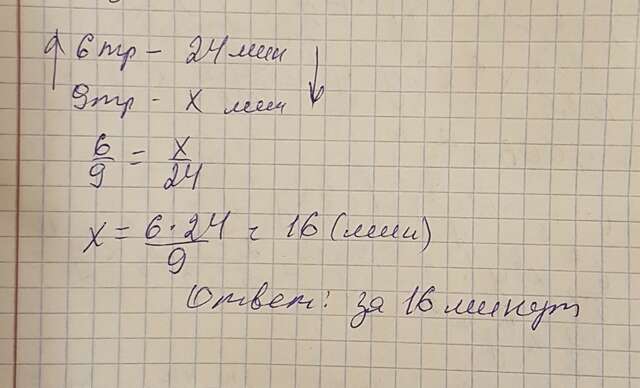 6 тр - 24 мин
9 тр - x мин
6/9 = x/24
x = 6·24/9 = 16 (мин)
Ответ: за 16 минут